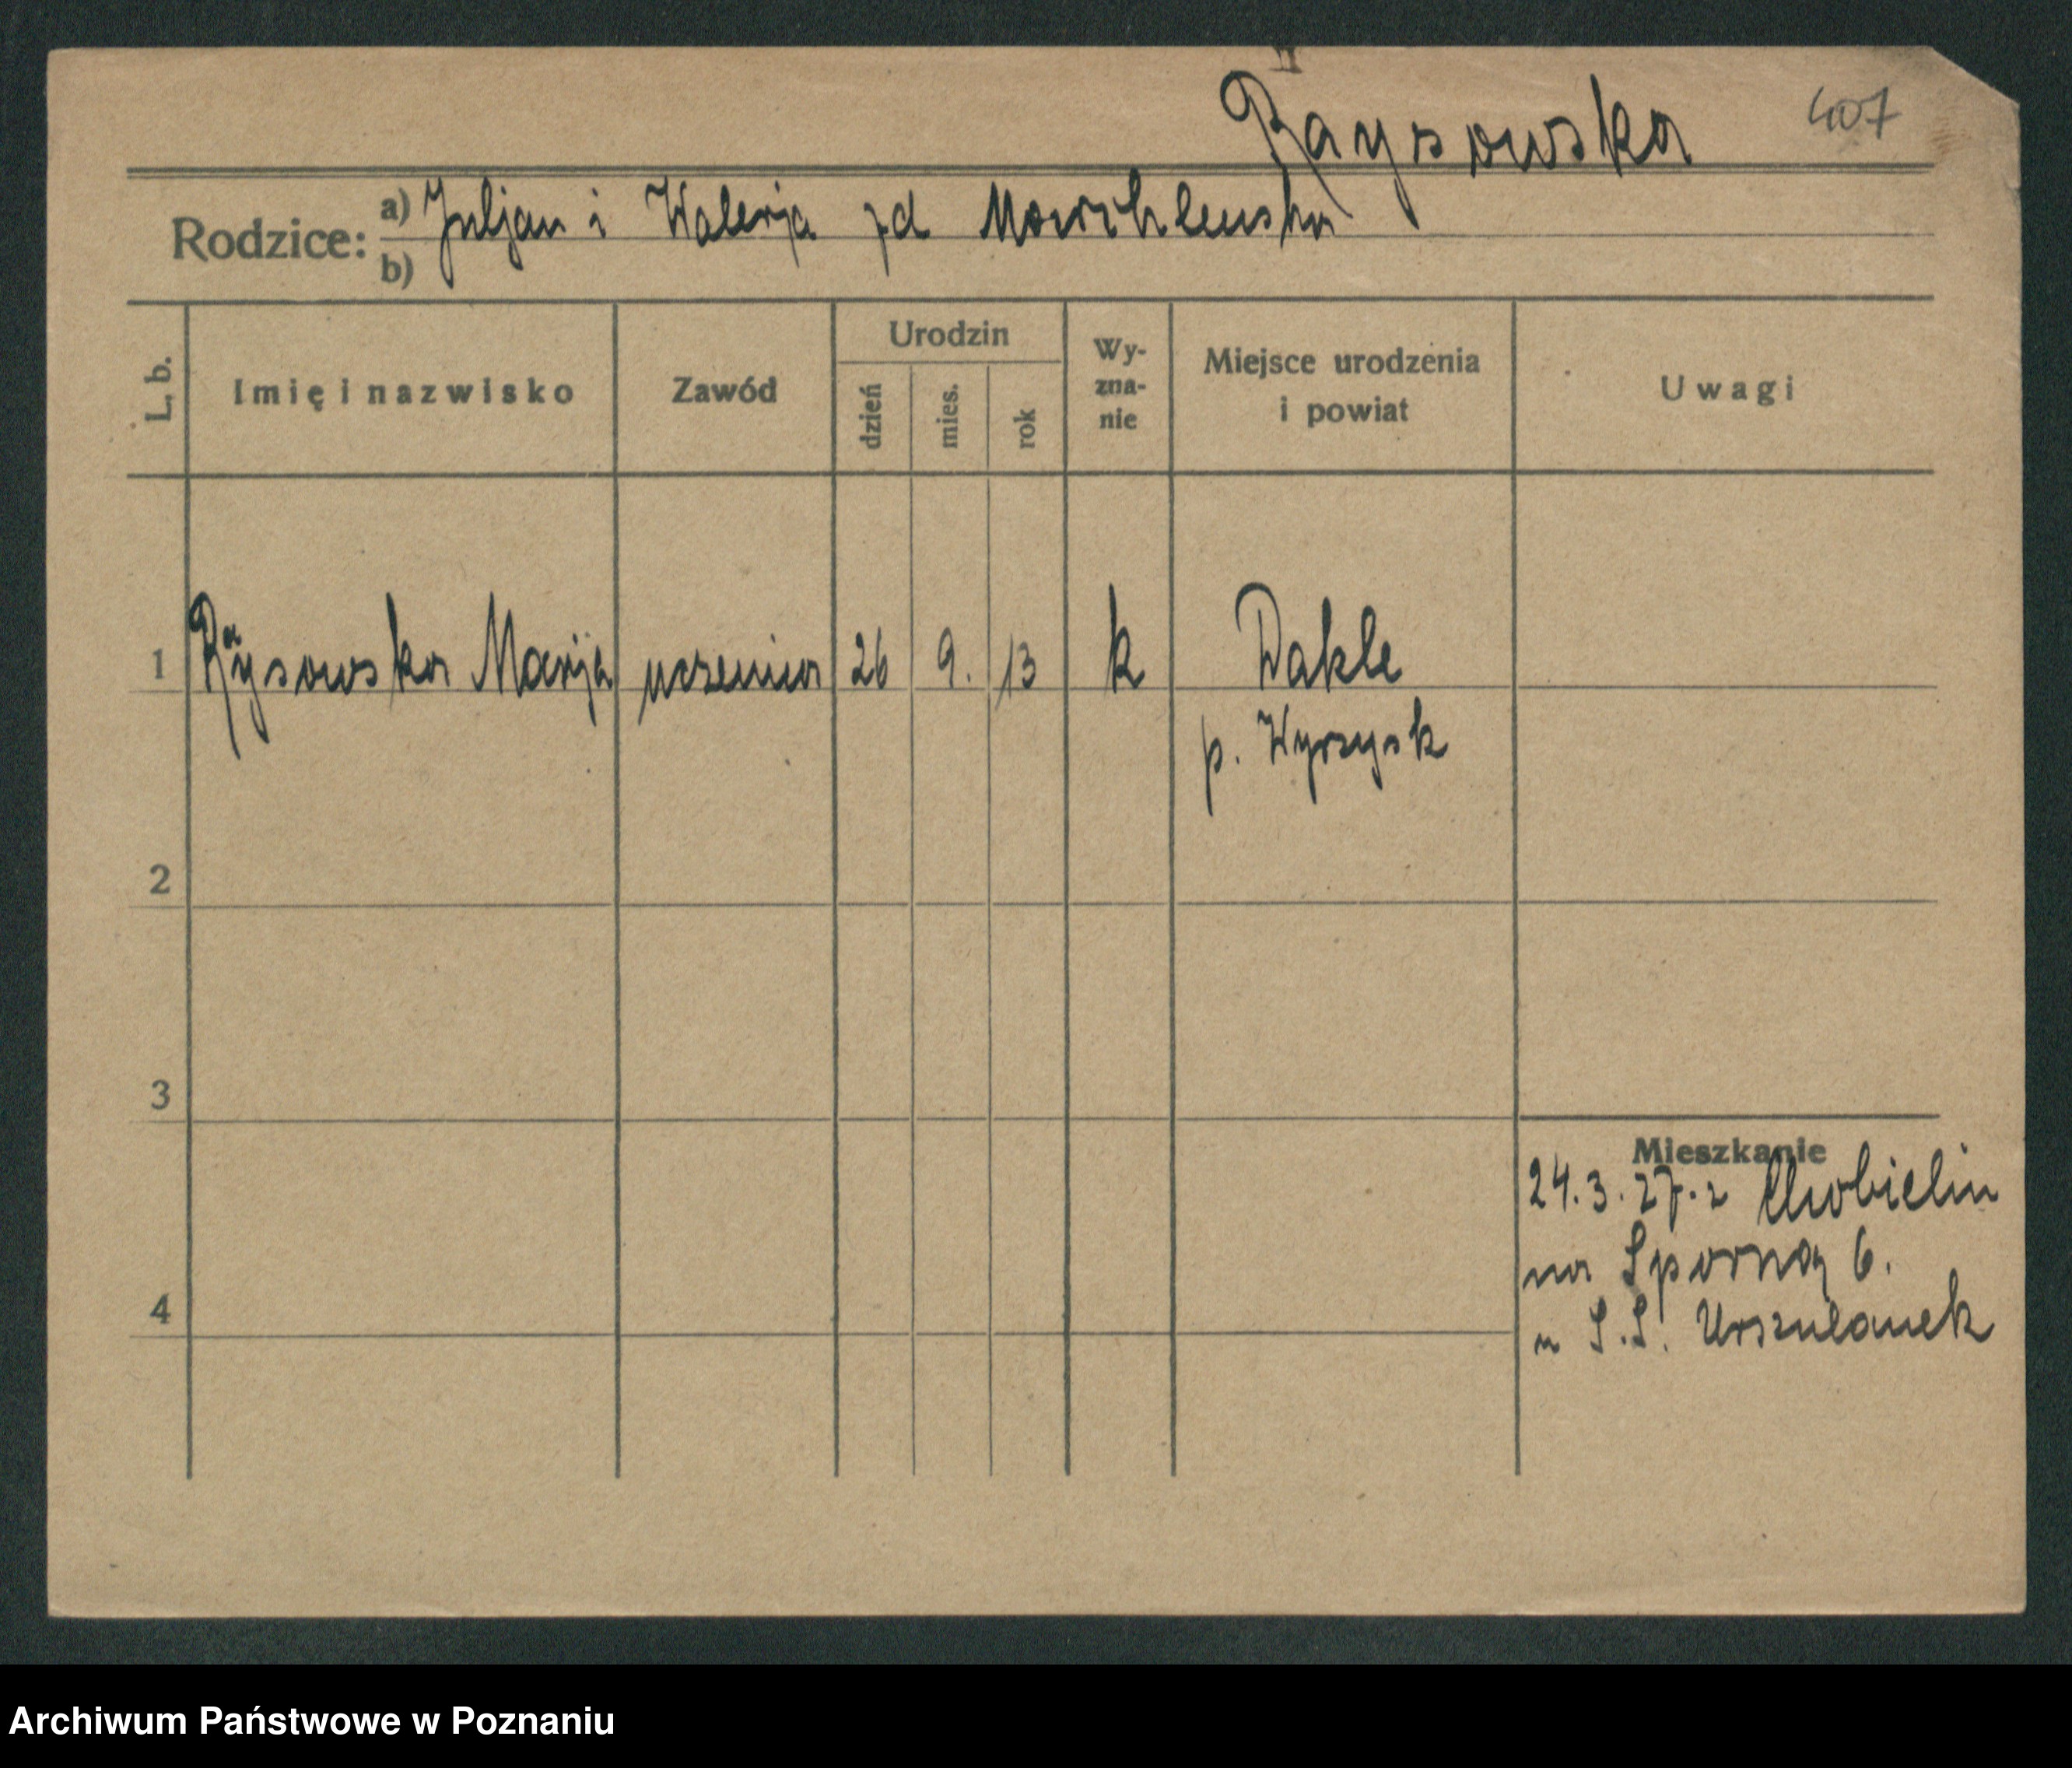 Raysowska 407
Rodzice: a) Juljan i Walerja zd
b)
L. b. Imię i nazwisko Zawód Urodzin dzień mies. rok Wy-zna-nie Miejsce urodzenia i powiat Uwagi
1 Raysowska Marja uczenica 26 9. 13 k
p. Wyrzysk
2
3
Mieszkanie
24.3.27. z Chobielin
na Sporną 6.
4 u S.S. Urszulanek
Archiwum Państwowe w Poznaniu